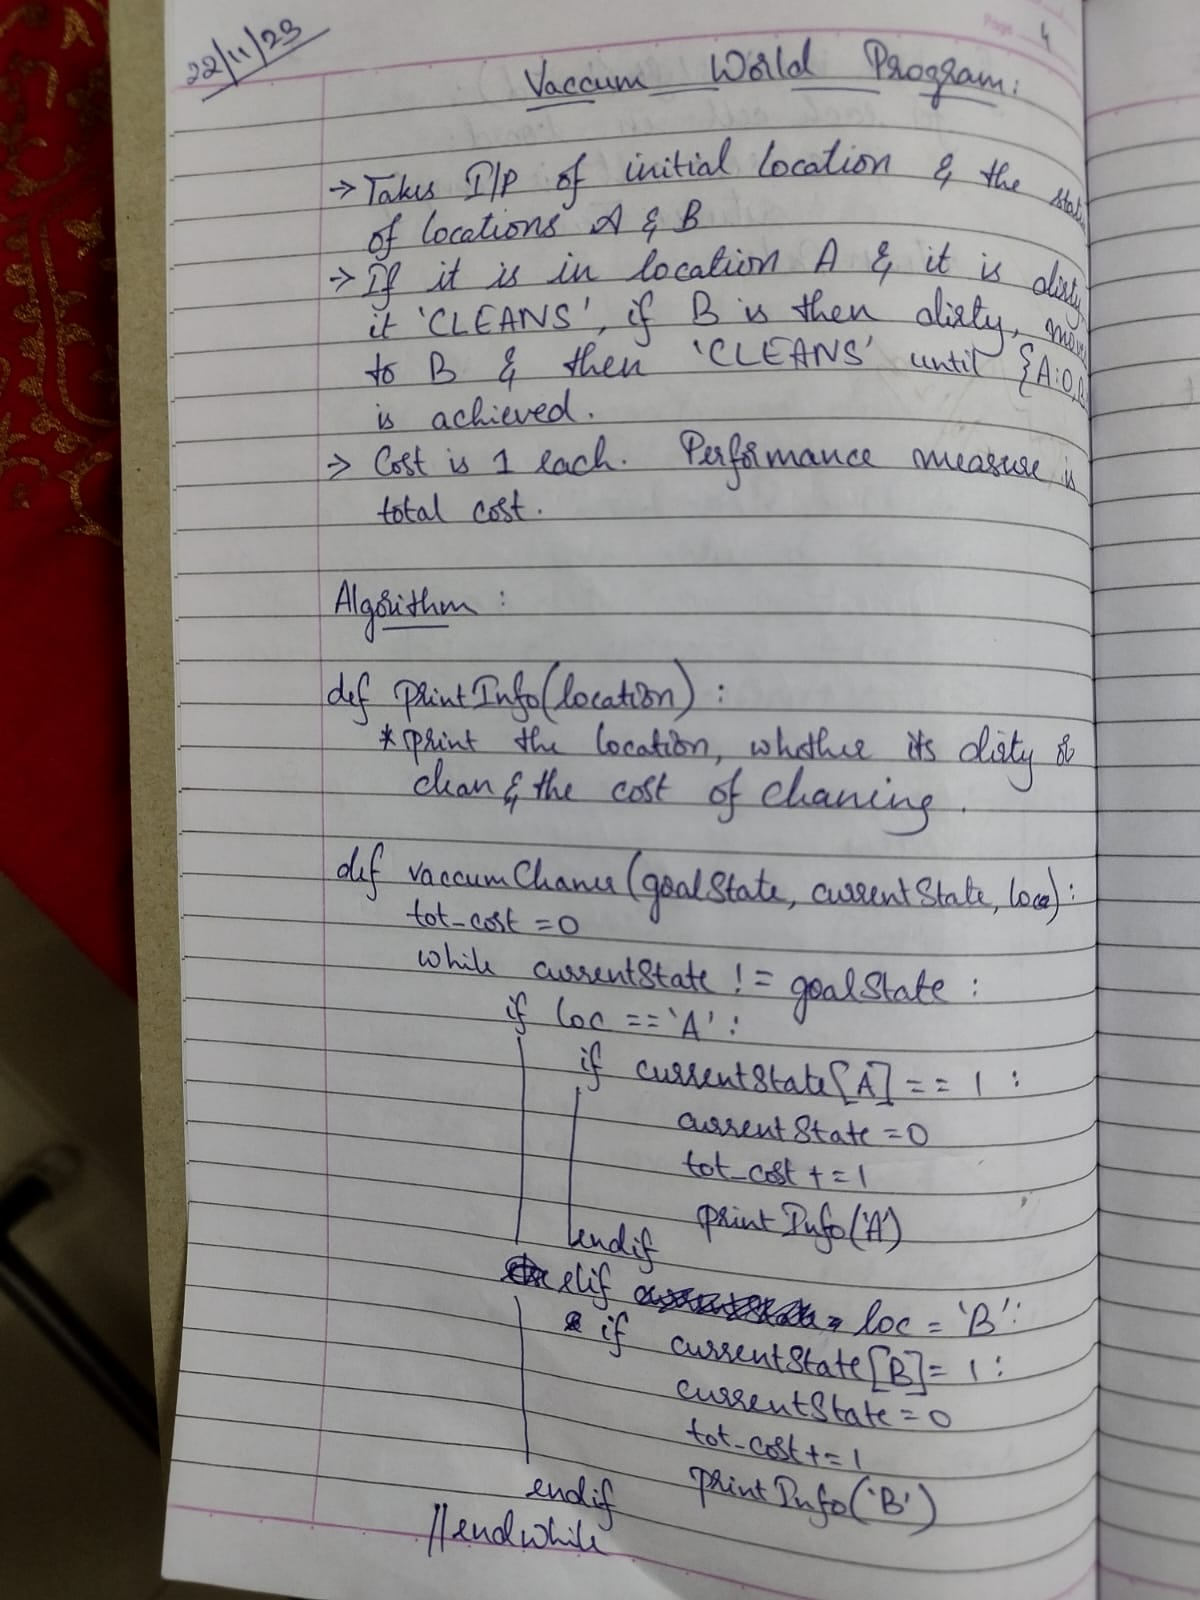 22/11/23
Page 4
Vaccum World Program:
→ Takes I/P of initial location & the
of locations A & B
→ If it is in location A & it is dirty
it 'CLEANS', if B is then dirty,
to B & then 'CLEANS' until {A:0,
is achieved.
→ Cost is 1 each. Performance measure is
total cost.
Algorithm :
def printInfo(location) :
* print the location, whether its dirty or
clean & the cost of cleaning.
def vaccumCleaner(goalState, currentState, loc) :
tot_cost = 0
while currentState != goalState :
if loc == 'A' :
if currentState[A] == 1 :
currentState = 0
tot_cost += 1
printInfo('A')
endif
elif loc = 'B' :
if currentState[B] = 1 :
currentState = 0
tot_cost += 1
printInfo('B')
endif
//endwhile